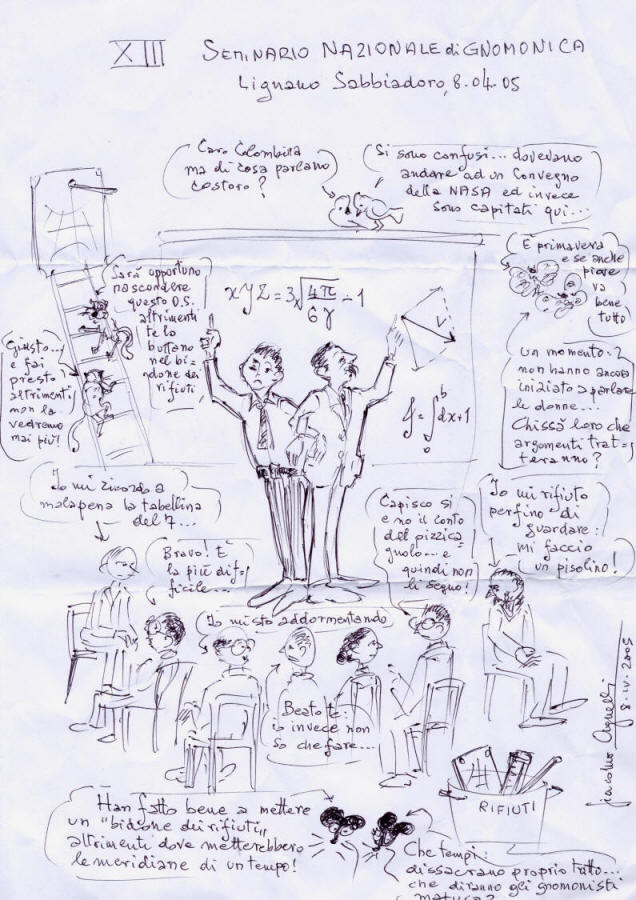 XIII SEMINARIO NAZIONALE di GNOMONICA
Lignano Sabbiadoro, 8.04.05
Caro Colombina
ma di cosa parlano
costoro?
Si sono confusi... dovevano
andare ad un Convegno
della NASA ed invece
sono capitati qui...
È primavera
e se anche
piove
va
bene
tutto
Sarà opportuno
nascondere
questo O.S.
altrimenti
te lo
buttano
nel bi=
done dei
rifiuti
Giusto...
e fai
presto
altrimenti
non lo
vedremo
mai più!
xyz = 3√4π/6γ - 1
V
∫ = ∫ b o dx+1
un momento:
non hanno ancora
iniziato a parlare
le donne...
Chissà loro che
argomenti trat=
teranno?
Io mi ricordo a
malapena la tabellina
del 7...
Bravo! È
la più dif=
ficile...
Io mi sto addormentando
Capisco si
e no il conto
del pizzica=
gnolo... e
quindi non
li seguo!
Io mi rifiuto
perfino di
guardare:
mi faccio
un pisolino!
Beato te:
io invece non
so che fare...
Giacomo Agnelli
8-IV-2005
RIFIUTI
Han fatto bene a mettere
un "bidone dei rifiuti"
altrimenti dove metterebbero
le meridiane di un tempo!
Che tempi:
dissacrano proprio tutto...
che diranno gli gnomonisti